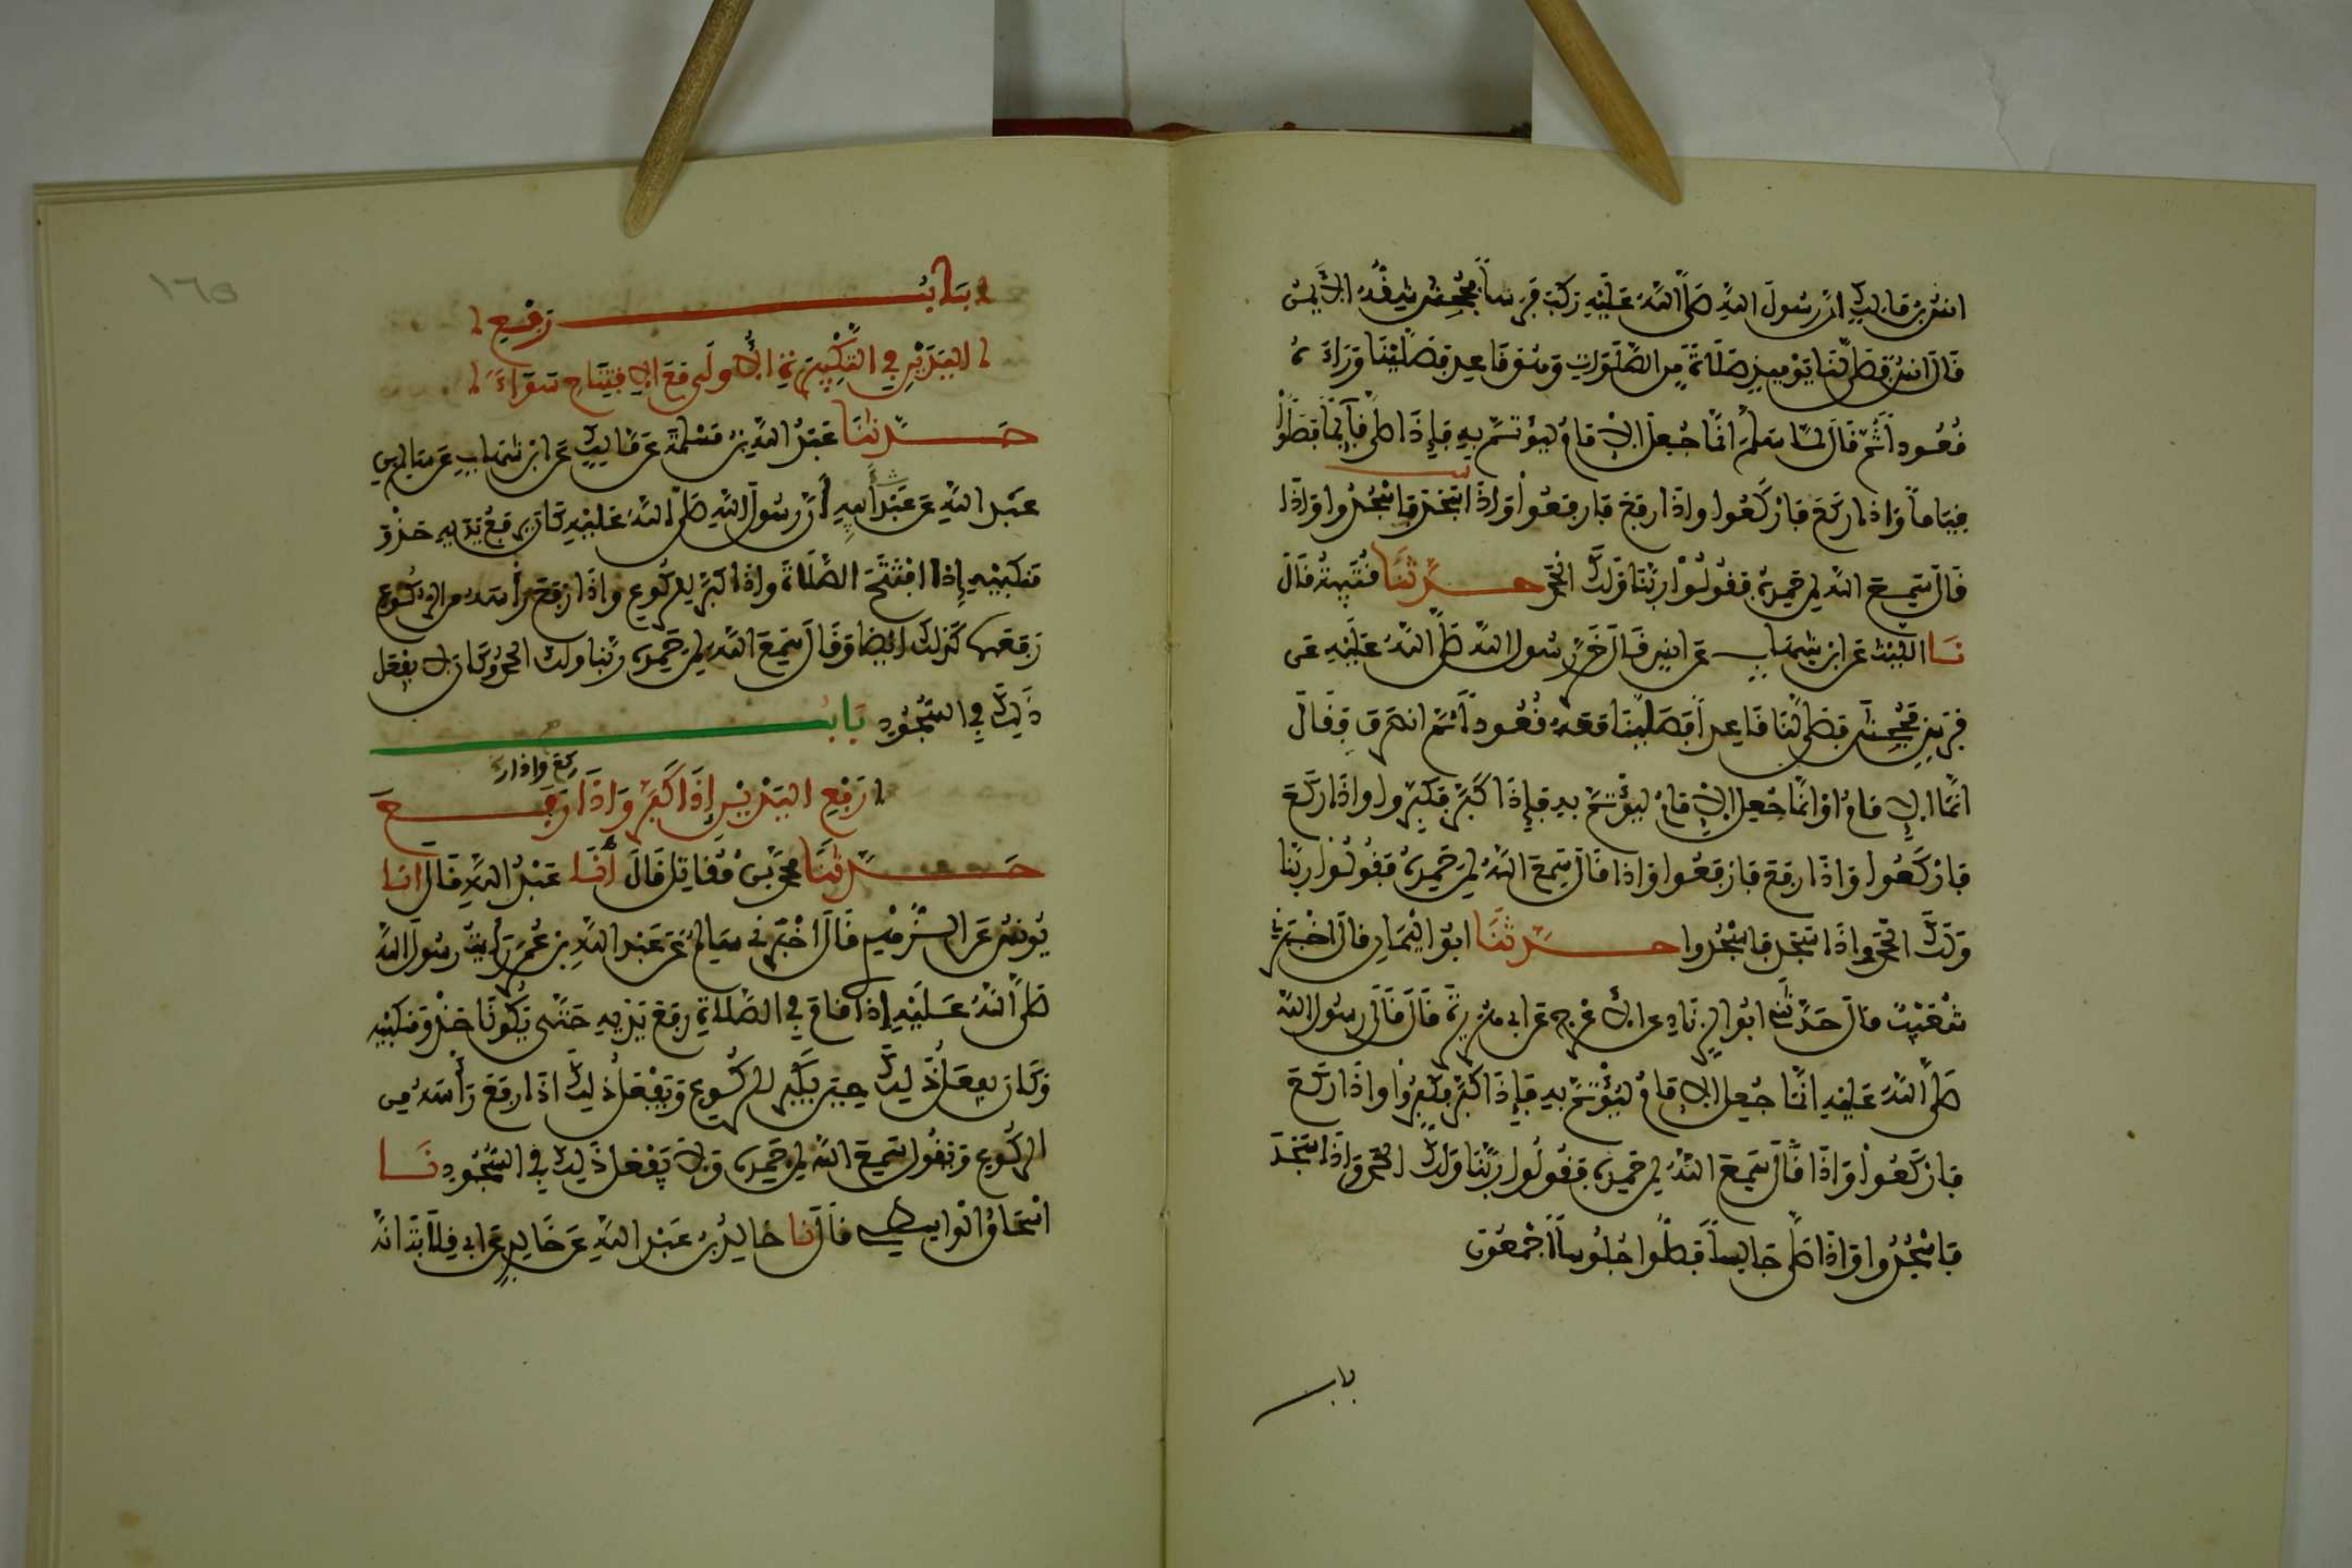 انس بن مالك ان رسول الله صلى الله عليه ركب فرسا فجحش شقه الايمن
قال انس فصلى لنا يومئذ صلاة من الصلوات وهو قاعد فصلينا وراءه
قعودا ثم قال لما سلم انما جعل الامام ليؤتم به فإذا صلى قائما فصلوا
قياما واذا ركع فاركعوا واذا رفع فارفعوا واذا سجد فاسجدوا واذا
قال سمع الله لمن حمده فقولوا ربنا ولك الحمد حدثنا قتيبة قال
نا الليث عن ابن شهاب عن انس قال خر رسول الله صلى الله عليه عن
فرس فجحش فصلى لنا قاعدا فصلينا معه قعودا ثم انصرف فقال
انما الامام او انما جعل الامام ليؤتم به فإذا كبر فكبروا واذا ركع
فاركعوا واذا رفع فارفعوا واذا قال سمع الله لمن حمده فقولوا ربنا
ولك الحمد واذا سجد فاسجدوا حدثنا ابو اليمان قال اخبرني
شعيب قال حدثني ابو الزناد عن الاعرج عن ابي هريرة قال قال رسول الله
صلى الله عليه انما جعل الامام ليؤتم به فإذا كبر فكبروا واذا ركع
فاركعوا واذا قال سمع الله لمن حمده فقولوا ربنا ولك الحمد واذا سجد
فاسجدوا واذا صلى جالسا فصلوا جلوسا اجمعون
باب
١٦٥
باب رفع
اليدين في التكبيرة الأولى مع الافتتاح سواء
حدثنا عبد الله بن مسلمة عن مالك عن ابن شهاب عن سالم بن
عبد الله عن عبد الله أن رسول الله صلى الله عليه كان يرفع يديه حذو
منكبيه إذا افتتح الصلاة واذا كبر للركوع واذا رفع رأسه من الركوع
رفعهما كذلك ايضا وقال سمع الله لمن حمده ربنا ولك الحمد وكان لا يفعل
ذلك في السجود باب
رفع اليدين إذا كبر واذا ركع واذا رفع
حدثنا محمد بن مقاتل قال أنا عبد الله قال انا
يونس عن الزهري قال اخبرني سالم عن عبد الله بن عمر رأيت رسول الله
صلى الله عليه إذا قام في الصلاة رفع يديه حتى تكونا حذو منكبيه
وكان يفعل ذلك حين يكبر للركوع ويفعل ذلك اذا رفع رأسه من
الركوع ويقول سمع الله لمن حمده ولا يفعل ذلك في السجود نا
اسحاق الواسطي قال نا خالد بن عبد الله عن خالد عن ابي قلابة انه